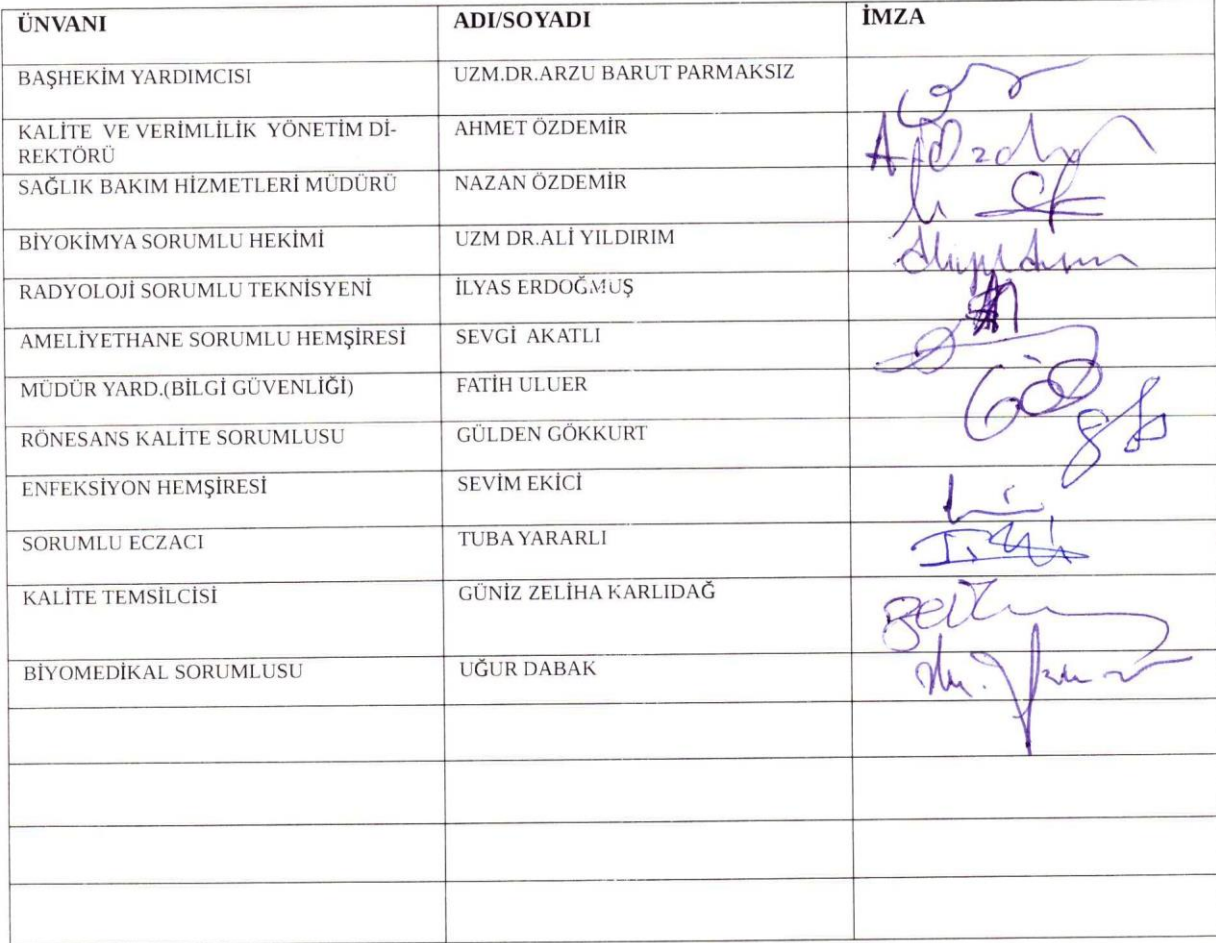 ÜNVANI ADI/SOYADI İMZA
BAŞHEKİM YARDIMCISI UZM.DR.ARZU BARUT PARMAKSIZ
KALİTE VE VERİMLİLİK YÖNETİM Dİ- AHMET ÖZDEMİR
REKTÖRÜ
SAĞLIK BAKIM HİZMETLERİ MÜDÜRÜ NAZAN ÖZDEMİR
BİYOKİMYA SORUMLU HEKİMİ UZM DR.ALİ YILDIRIM
RADYOLOJİ SORUMLU TEKNİSYENİ İLYAS ERDOĞMUŞ
AMELİYETHANE SORUMLU HEMŞİRESİ SEVGİ AKATLI
MÜDÜR YARD.(BİLGİ GÜVENLİĞİ) FATİH ULUER
RÖNESANS KALİTE SORUMLUSU GÜLDEN GÖKKURT
ENFEKSİYON HEMŞİRESİ SEVİM EKİCİ
SORUMLU ECZACI TUBA YARARLI
KALİTE TEMSİLCİSİ GÜNİZ ZELİHA KARLIDAĞ
BİYOMEDİKAL SORUMLUSU UĞUR DABAK